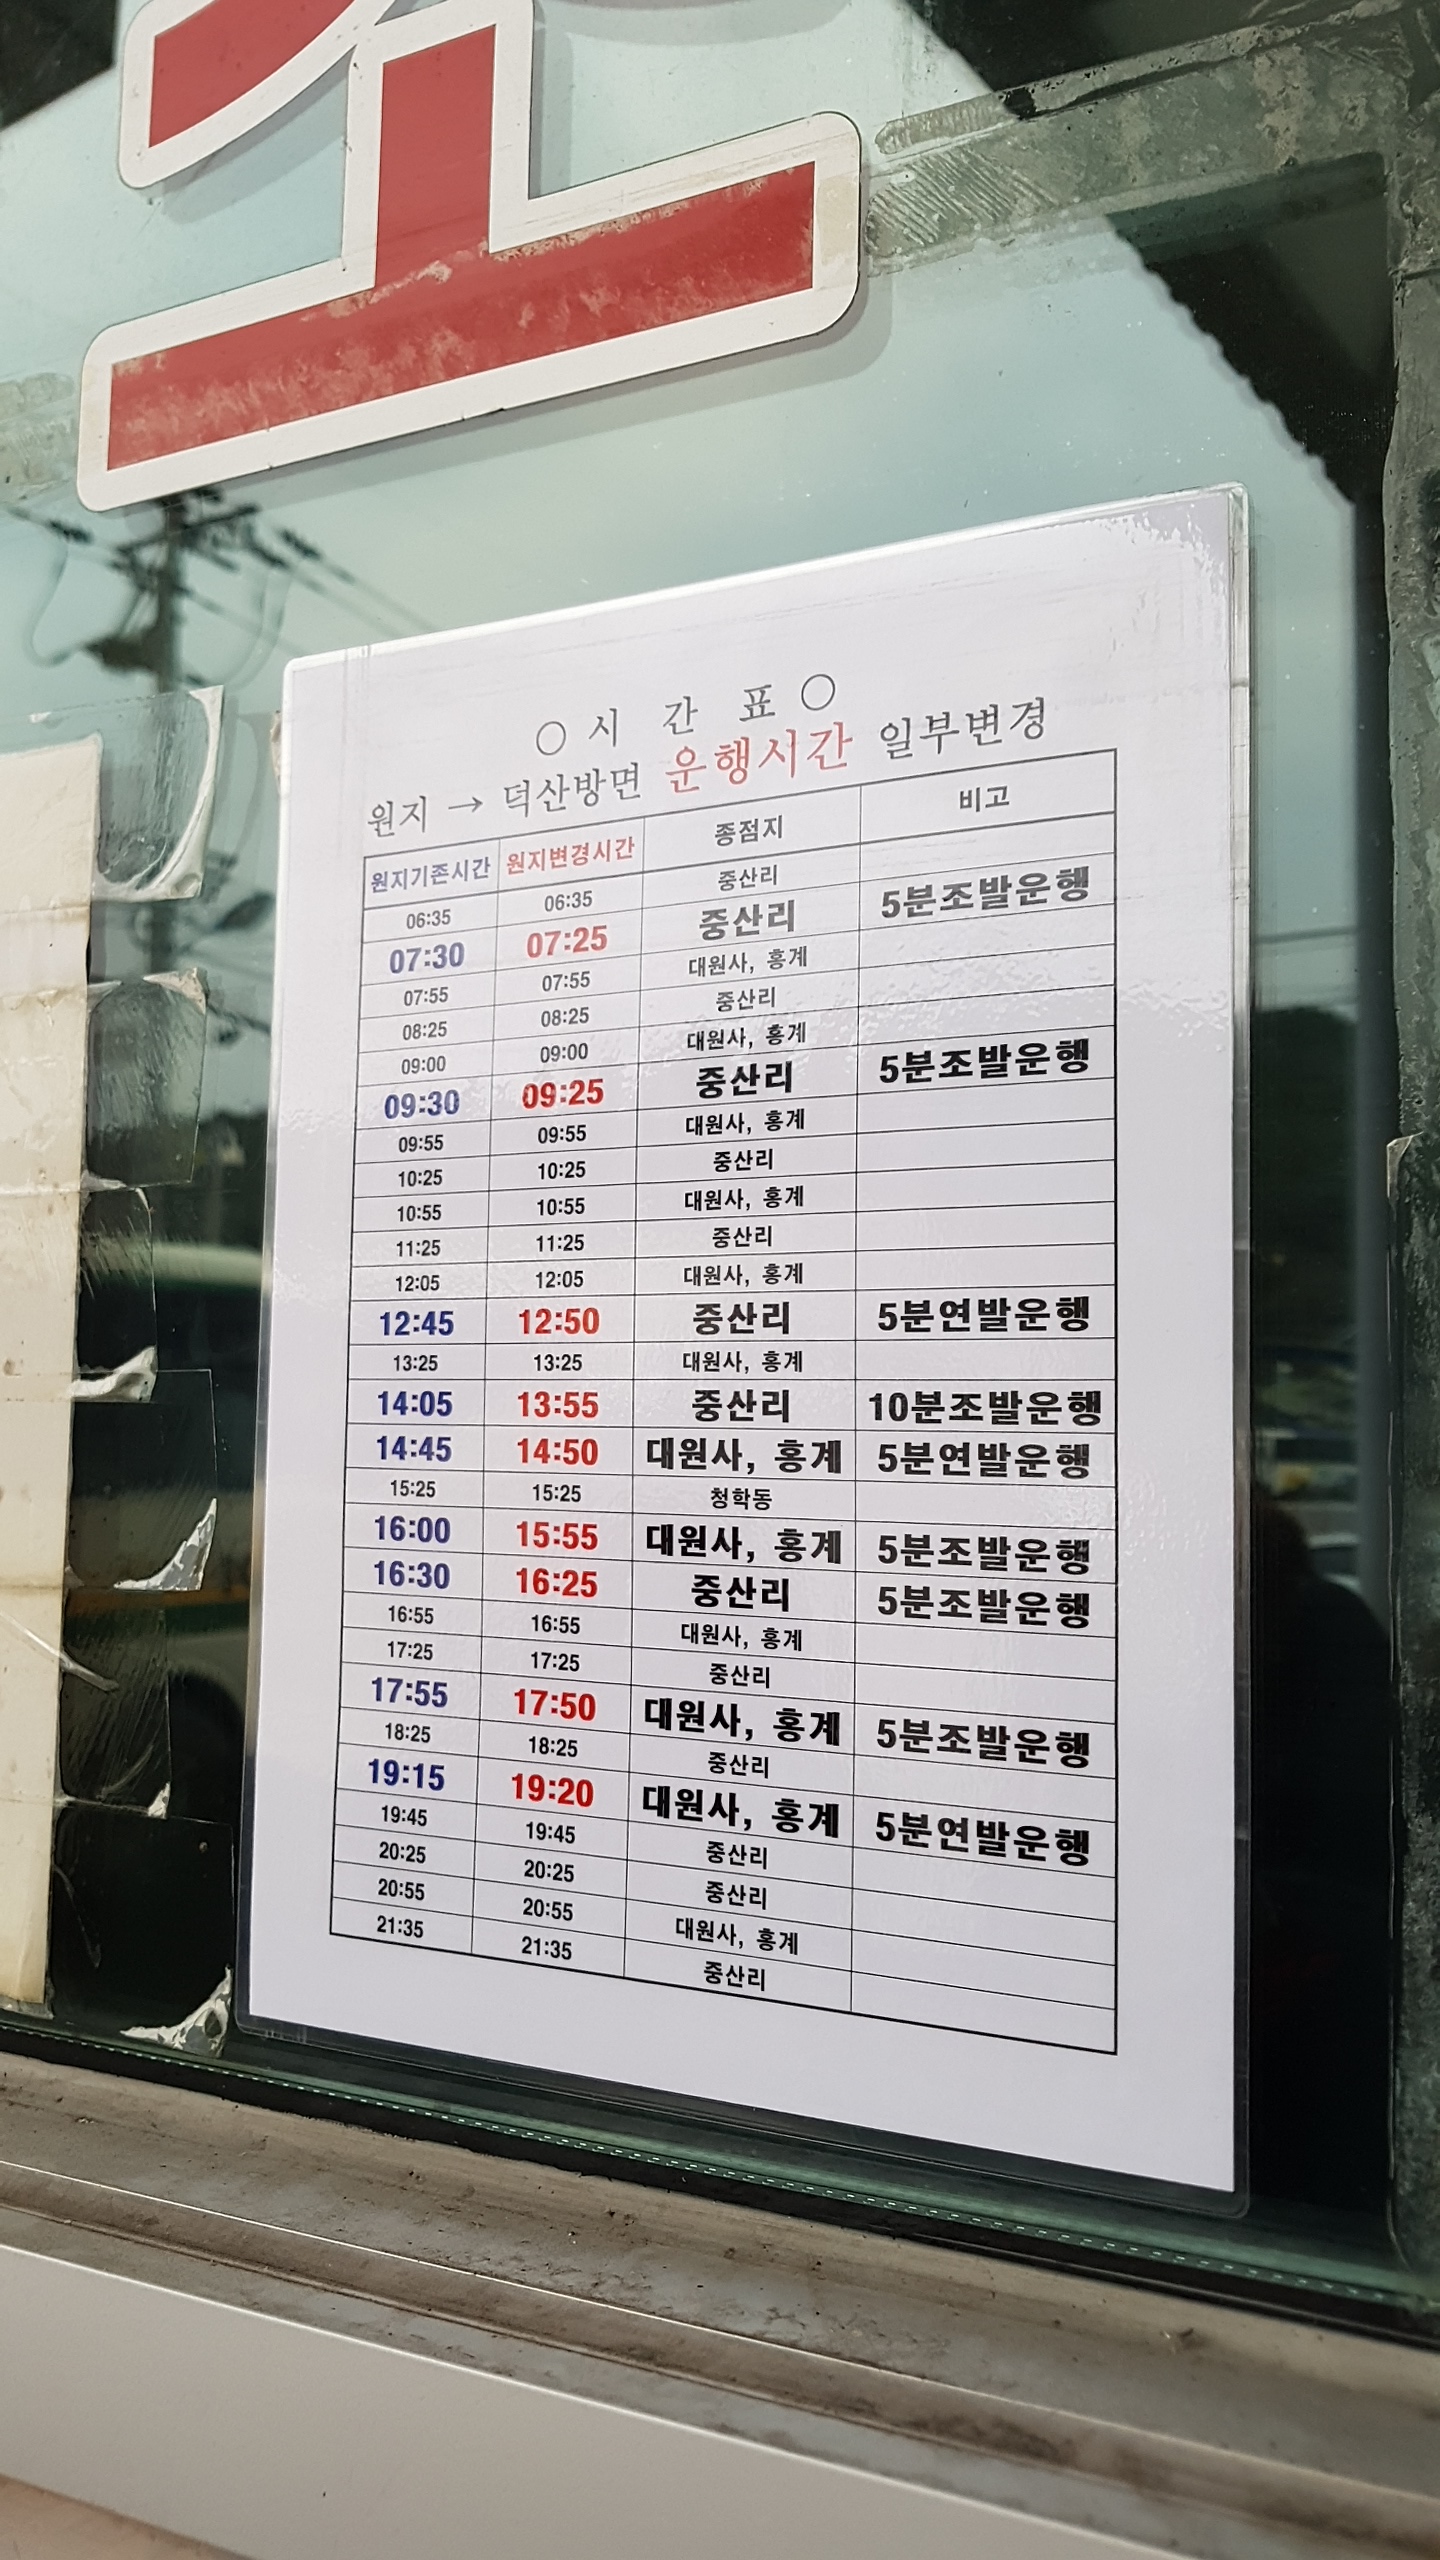 ○ 시 간 표 ○
원지 → 덕산방면 운행시간 일부변경
원지기존시간 원지변경시간 종점지 비고
06:35 06:35 중산리
07:30 07:25 중산리 5분조발운행
07:55 07:55 대원사, 홍계
08:25 08:25 중산리
09:00 09:00 대원사, 홍계
09:30 09:25 중산리 5분조발운행
09:55 09:55 대원사, 홍계
10:25 10:25 중산리
10:55 10:55 대원사, 홍계
11:25 11:25 중산리
12:05 12:05 대원사, 홍계
12:45 12:50 중산리 5분연발운행
13:25 13:25 대원사, 홍계
14:05 13:55 중산리 10분조발운행
14:45 14:50 대원사, 홍계 5분연발운행
15:25 15:25 청학동
16:00 15:55 대원사, 홍계 5분조발운행
16:30 16:25 중산리 5분조발운행
16:55 16:55 대원사, 홍계
17:25 17:25 중산리
17:55 17:50 대원사, 홍계 5분조발운행
18:25 18:25 중산리
19:15 19:20 대원사, 홍계 5분연발운행
19:45 19:45 중산리
20:25 20:25 중산리
20:55 20:55 대원사, 홍계
21:35 21:35 중산리